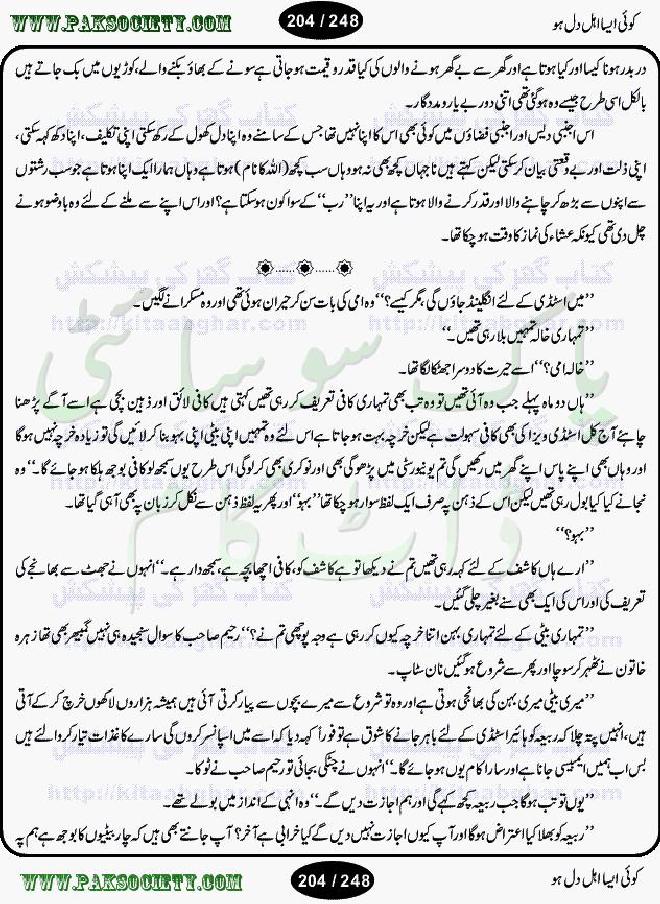 WWW.PAKSOCIETY.COM 204 / 248 کوئی ایسا اہل دل ہو
در بدر ہونا کیسا اور کیا ہوتا ہے اور گھر سے بے گھر ہونے والوں کی کیا قدر و قیمت ہو جاتی ہے سونے کے بھاؤ بکنے والے، کوڑیوں میں بک جاتے ہیں
بالکل اسی طرح جیسے وہ ہو گئی تھی اتنی دور بے یارو مددگار۔
اس اجنبی دیس اور اجنبی فضاؤں میں کوئی بھی اس کا اپنا نہیں تھا جس کے سامنے وہ اپنا دل کھول کے رکھ سکتی اپنی تکلیف، اپنا دکھ کہہ سکتی،
اپنی ذلت اور بے وقعتی بیان کر سکتی لیکن کہتے ہیں نا جہاں کچھ بھی نہ ہو وہاں سب کچھ (اللہ کا نام) ہوتا ہے وہاں ہمارا ایک اپنا ہوتا ہے جو سب رشتوں
سے اپنوں سے بڑھ کر چاہنے والا اور قدر کرنے والا ہوتا ہے اور یہ اپنا ”رب“ کے سوا کون ہو سکتا ہے؟ اور اس اپنے سے ملنے کے لئے وہ باوضو ہونے
چل دی تھی کیونکہ عشاء کی نماز کا وقت ہو چکا تھا۔
”میں اسٹڈی کے لئے انگلینڈ جاؤں گی، مگر کیسے؟“ وہ امی کی بات سن کر حیران ہوئی تھی اور وہ مسکرانے لگیں۔
”تمہاری خالہ تمہیں بلا رہی تھیں۔“
”خالہ امی؟“ اسے حیرت کا دوسرا جھٹکا لگا تھا۔
”ہاں دو ماہ پہلے جب وہ آئی تھیں تو وہ تب بھی تمہاری کافی تعریف کر رہی تھیں کہتی ہیں کافی لائق اور ذہین بچی ہے اسے آگے پڑھنا
چاہئے آج کل اسٹڈی ویزا کی بھی کافی سہولت ہے لیکن خرچہ بہت ہو جاتا ہے اس لئے وہ تمہیں اپنی بیٹی اپنی بہو بنا کر لائیں گی تو زیادہ خرچہ نہیں ہوگا
اور وہاں بھی اپنے پاس اپنے گھر میں رکھیں گی تم یونیورسٹی میں پڑھو گی بھی اور نوکری بھی کر لو گی اس طرح یوں سمجھ لو کافی بوجھ ہلکا ہو جائے گا۔“ وہ
نجانے کیا کیا بول رہی تھیں لیکن اس کے ذہن پہ صرف ایک لفظ سوار ہو چکا تھا ”بہو“ اور پھر یہ لفظ ذہن سے نکل کر زبان پہ بھی آ ہی گیا تھا۔
”بہو؟“
”ارے ہاں کاشف کے لئے کہہ رہی تھیں تم نے دیکھا تو ہے کاشف کو، کافی اچھا بچہ ہے، سمجھ دار ہے۔“ انہوں نے جھٹ سے بھانجے کی
تعریف کی اور اس کی ایک بھی سنے بغیر چلی گئیں۔
”تمہاری بیٹی کے لئے تمہاری بہن اتنا خرچہ کیوں کر رہی ہے وجہ پوچھی تم نے؟“ رحیم صاحب کا سوال سنجیدہ ہی نہیں گمبھیر بھی تھا زہرہ
خاتون نے ٹھہر کر سوچا اور پھر سے شروع ہو گئیں نان سٹاپ۔
”میری بیٹی میری بہن کی بھانجی ہوتی ہے اور وہ تو شروع سے میرے بچوں سے پیار کرتی آئی ہیں ہمیشہ ہزاروں لاکھوں خرچ کر کے آتی
ہیں، انہیں پتہ چلا کہ ربیعہ کو ہائیر اسٹڈی کے لئے باہر جانے کا شوق ہے تو فوراً کہہ دیا کہ اسے میں اسپانسر کروں گی سارے کاغذات تیار کروا لئے ہیں
بس اب ہمیں ایمبیسی جانا ہے اور سارا کام یوں ہو جائے گا۔“ انہوں نے چٹکی بجائی تو رحیم صاحب نے ٹوکا۔
”یوں تو تب ہوگا جب ربیعہ کچھ کہے گی اور ہم اجازت دیں گے۔“ وہ انہی کے انداز میں بولے تھے۔
”ربیعہ کو بھلا کیا اعتراض ہوگا اور آپ کیوں اجازت نہیں دیں گے کیا خرابی ہے آخر؟ آپ جانتے بھی ہیں کہ چار بیٹیوں کا بوجھ ہے ہم پہ
WWW.PAKSOCIETY.COM 204 / 248 کوئی ایسا اہل دل ہو
کتاب گھر کی پیشکش
http://kitaabghar.com
پاک سوسائٹی
ڈاٹ کام